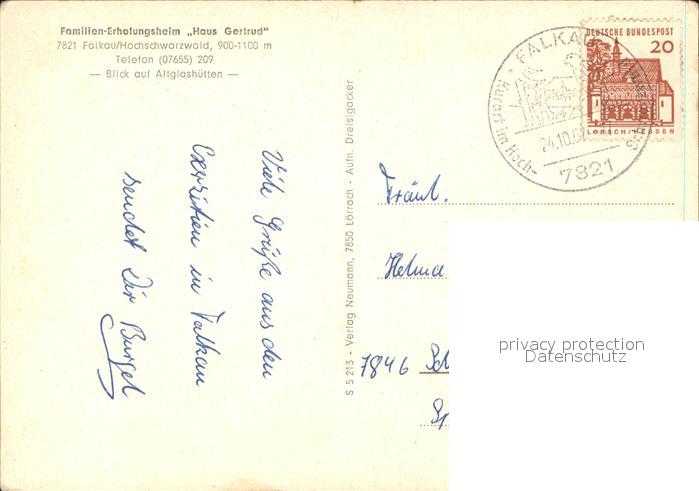 Familien-Erholungsheim „Haus Gertrud"
7821 Falkau/Hochschwarzwald, 900-1100 m
Telefon (07655) 209
— Blick auf Altglashütten —
Viele Grüße aus den
Exerzitien in Falkau
sendet Dir Burgel
S 5 213 - Verlag Neumann, 7850 Lörrach - Aufn. Dreisigacker
FALKAU
Kurort im Hoch-
24.10.67
7821
DEUTSCHE BUNDESPOST
20
LORSCH/HESSEN
Fräul.
Helma
7846 Sch
Sp
privacy protection
Datenschutz